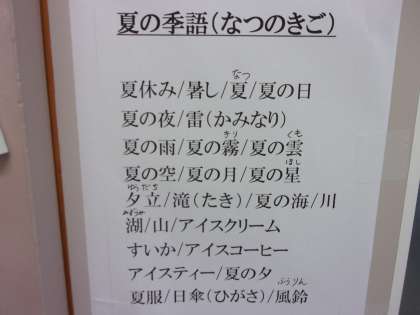 夏の季語(なつのきご)
なつ
夏休み/暑し/夏/夏の日
夏の夜/雷(かみなり)
きり くも
夏の雨/夏の霧/夏の雲
ほし
夏の空/夏の月/夏の星
ゆうだち
夕立/滝(たき)/夏の海/川
みずうみ
湖/山/アイスクリーム
すいか/アイスコーヒー
アイスティー/夏の夕
ふうりん
夏服/日傘(ひがさ)/風鈴